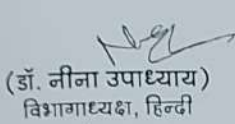 (डॉ. नीना उपाध्याय)
विभागाध्यक्ष, हिन्दी